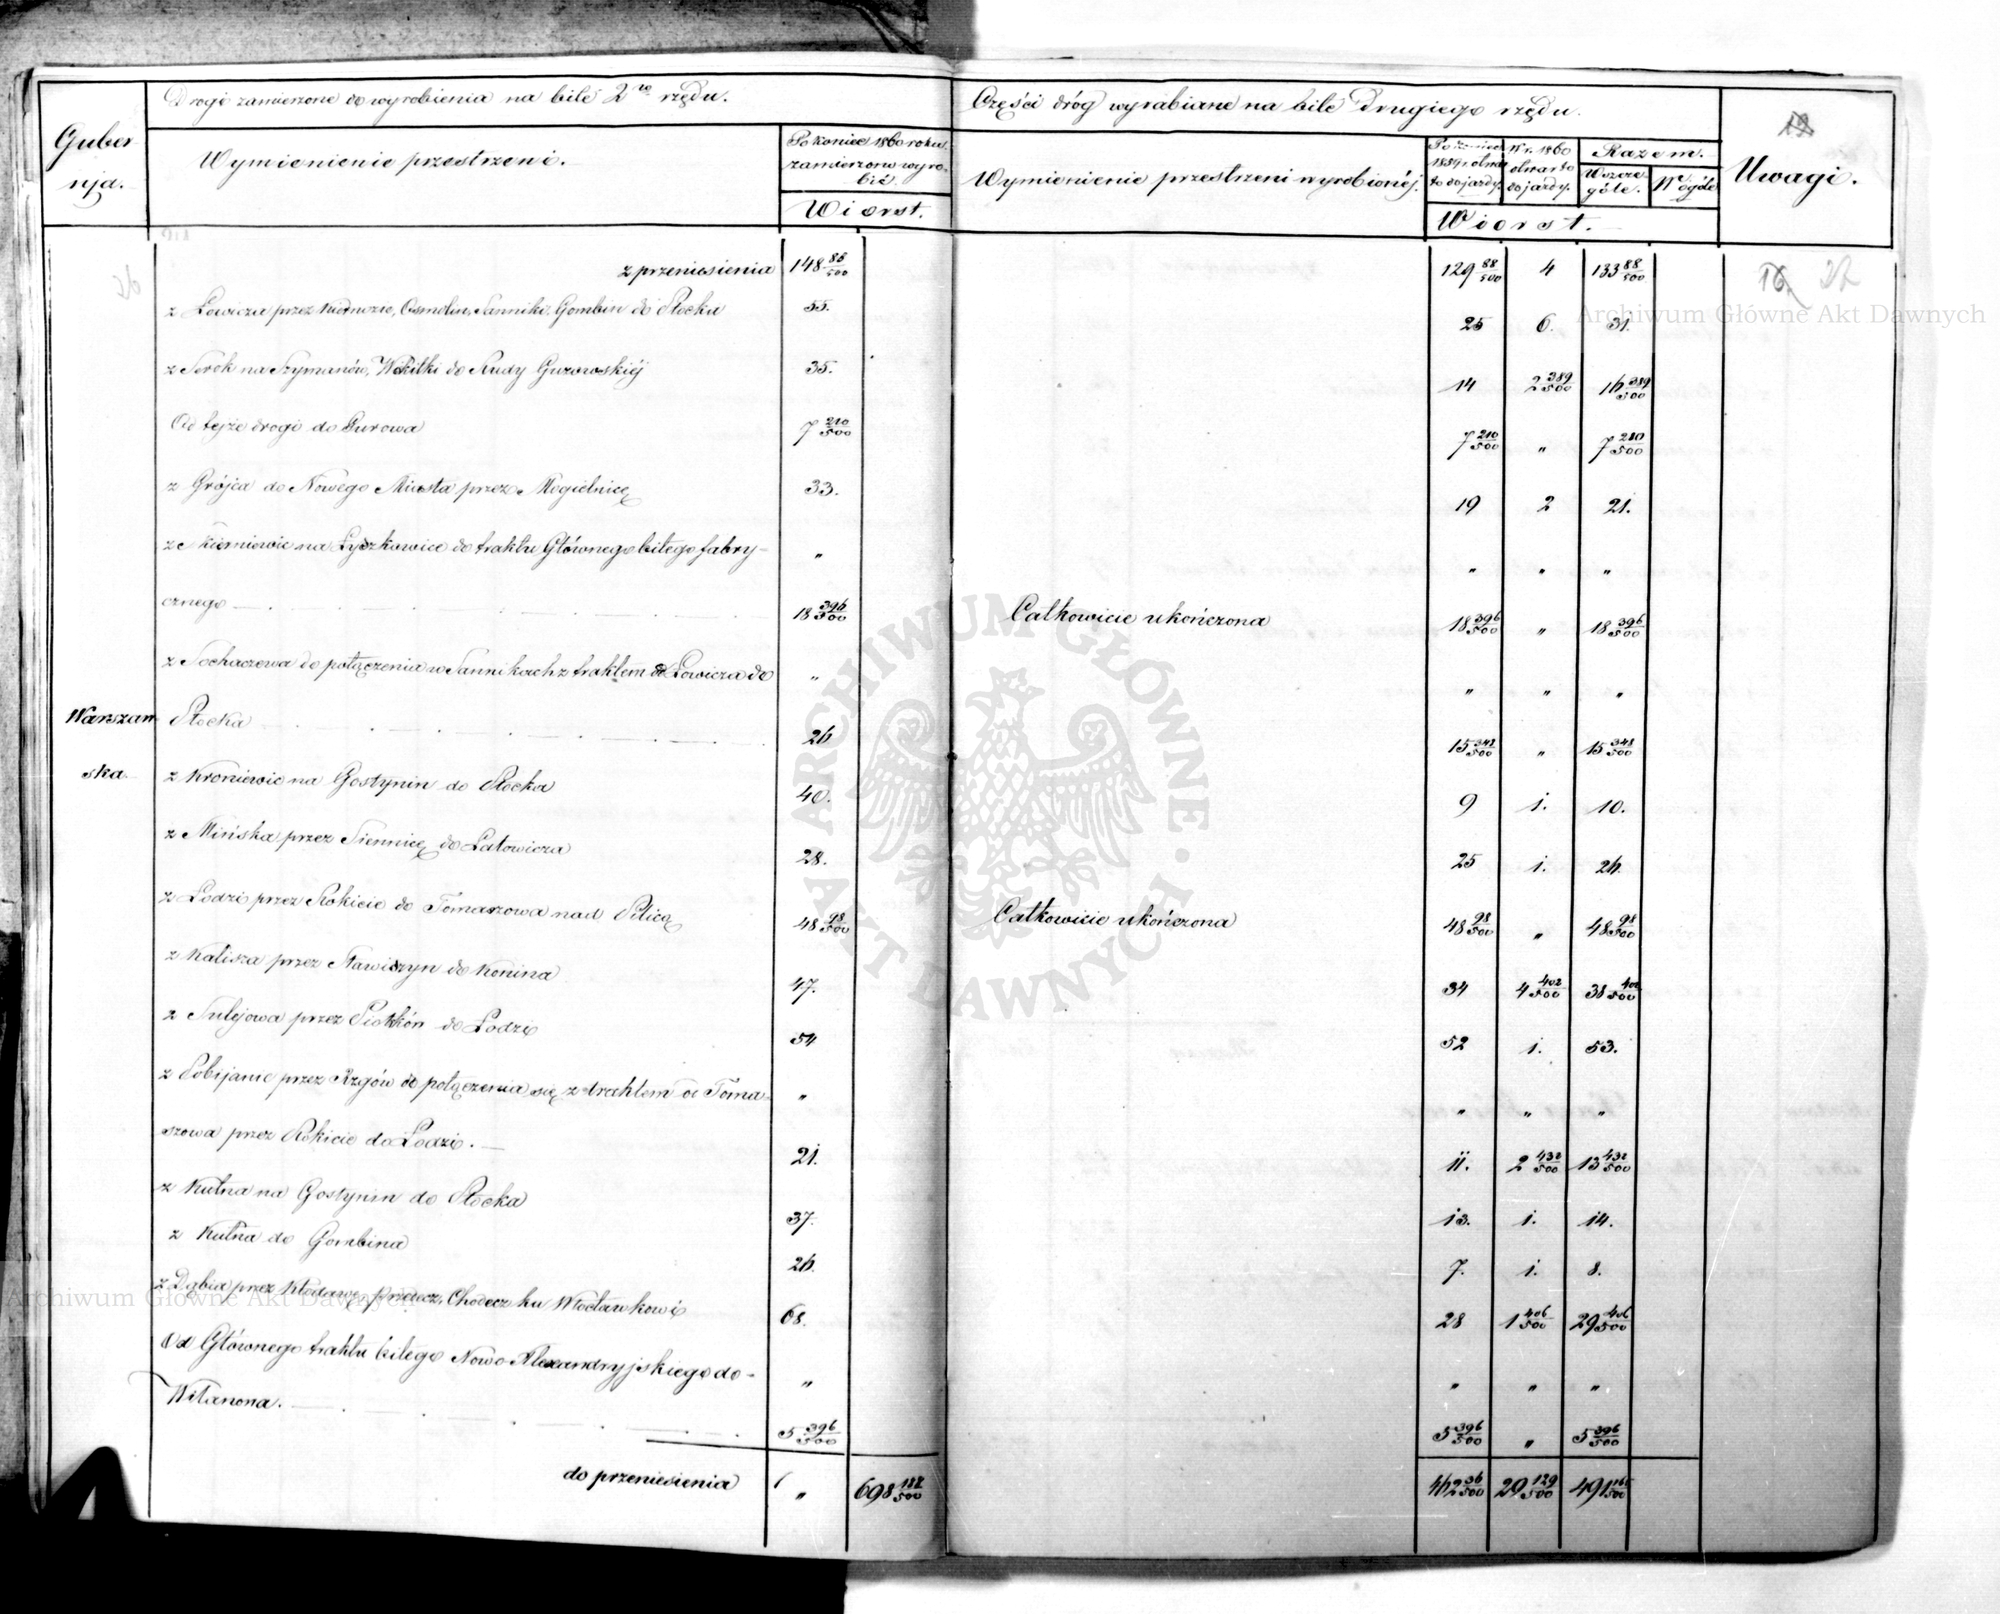 Drogi zamierzone do wyrobienia na bite 2go rzędu.
Części dróg wyrabiane na bite Drugiego rzędu.
Guber
nja.
Wymienienie przestrzeni.
Po koniec 1860 roku
zamierzono wyro-
bić
Wiorst.
Wymienienie przestrzeni wyrobionéj.
Po koniec
1859 r. otwar
to dojazdy.
W r. 1860
otwarto
dojazdy.
Razem.
W szcze
góle.
W ogóle
Wiorst.
Uwagi.
z przeniesienia 148 88/500 129 88/500 4 133 88/500
z Łowicza przez Kiernozie, Osmolin, Sanniki, Gombin do Płocka 55. 25 6. 31.
z Serok na Szymanów, Wiskitki do Rudy Guzowskiéj 35. 14 2 389/500 16 389/500
Od tejże drogi do Gurowa 7 210/500 7 210/500 „ 7 210/500
z Grójca do Nowego Miasta przez Mogielnicę 33. 19 2 21.
ze Skierniewic na Łyszkowice do traktu Głównego bitego fabry- „ „ „ „
cznego 18 396/500 Całkowicie ukończona 18 396/500 „ 18 396/500
z Sochaczewa do połączenia w Sannikach z traktem z Łowicza do „ „ „ „
Warszaw Płocka 26 15 348/500 „ 15 348/500
ska z Kroniewic na Gostynin do Płocka 40. 9 1. 10.
z Mińska przez Siennicę do Latowicza 28. 25 1. 26.
z Łodzi przez Rokicie do Tomaszowa nad Pilicą 48 98/500 Całkowicie ukończona 48 98/500 „ 48 98/500
z Kalisza przez Stawiszyn do Konina 47. 34 4 402/500 38 402/500
z Sulejowa przez Piotrków do Łodzi 54 52 1. 53.
z Pobijanic przez Rzgów do połączenia się z traktem od Toma- „ „ „ „
szowa przez Rokicie do Łodzi. 21. 11. 2 432/500 13 432/500
z Kutna na Gostynin do Płocka 37. 13. 1. 14.
z Kutna do Gombina 26. 7. 1. 8.
z Dąbia przez Kłodawę, Przedecz, Chodecz ku Włocławkowi 68. 28 1 406/500 29 406/500
Od Głównego traktu bitego Nowo-Alexandryjskiego do- „ „ „ „
Wilanowa. 5 396/500 5 396/500 „ 5 396/500
do przeniesienia „ 698 188/500 462 36/500 29 129/500 491 165/500
Archiwum Główne Akt Dawnych
Archiwum Główne Akt Dawnych
ARCHIWUM GŁÓWNE AKT DAWNYCH